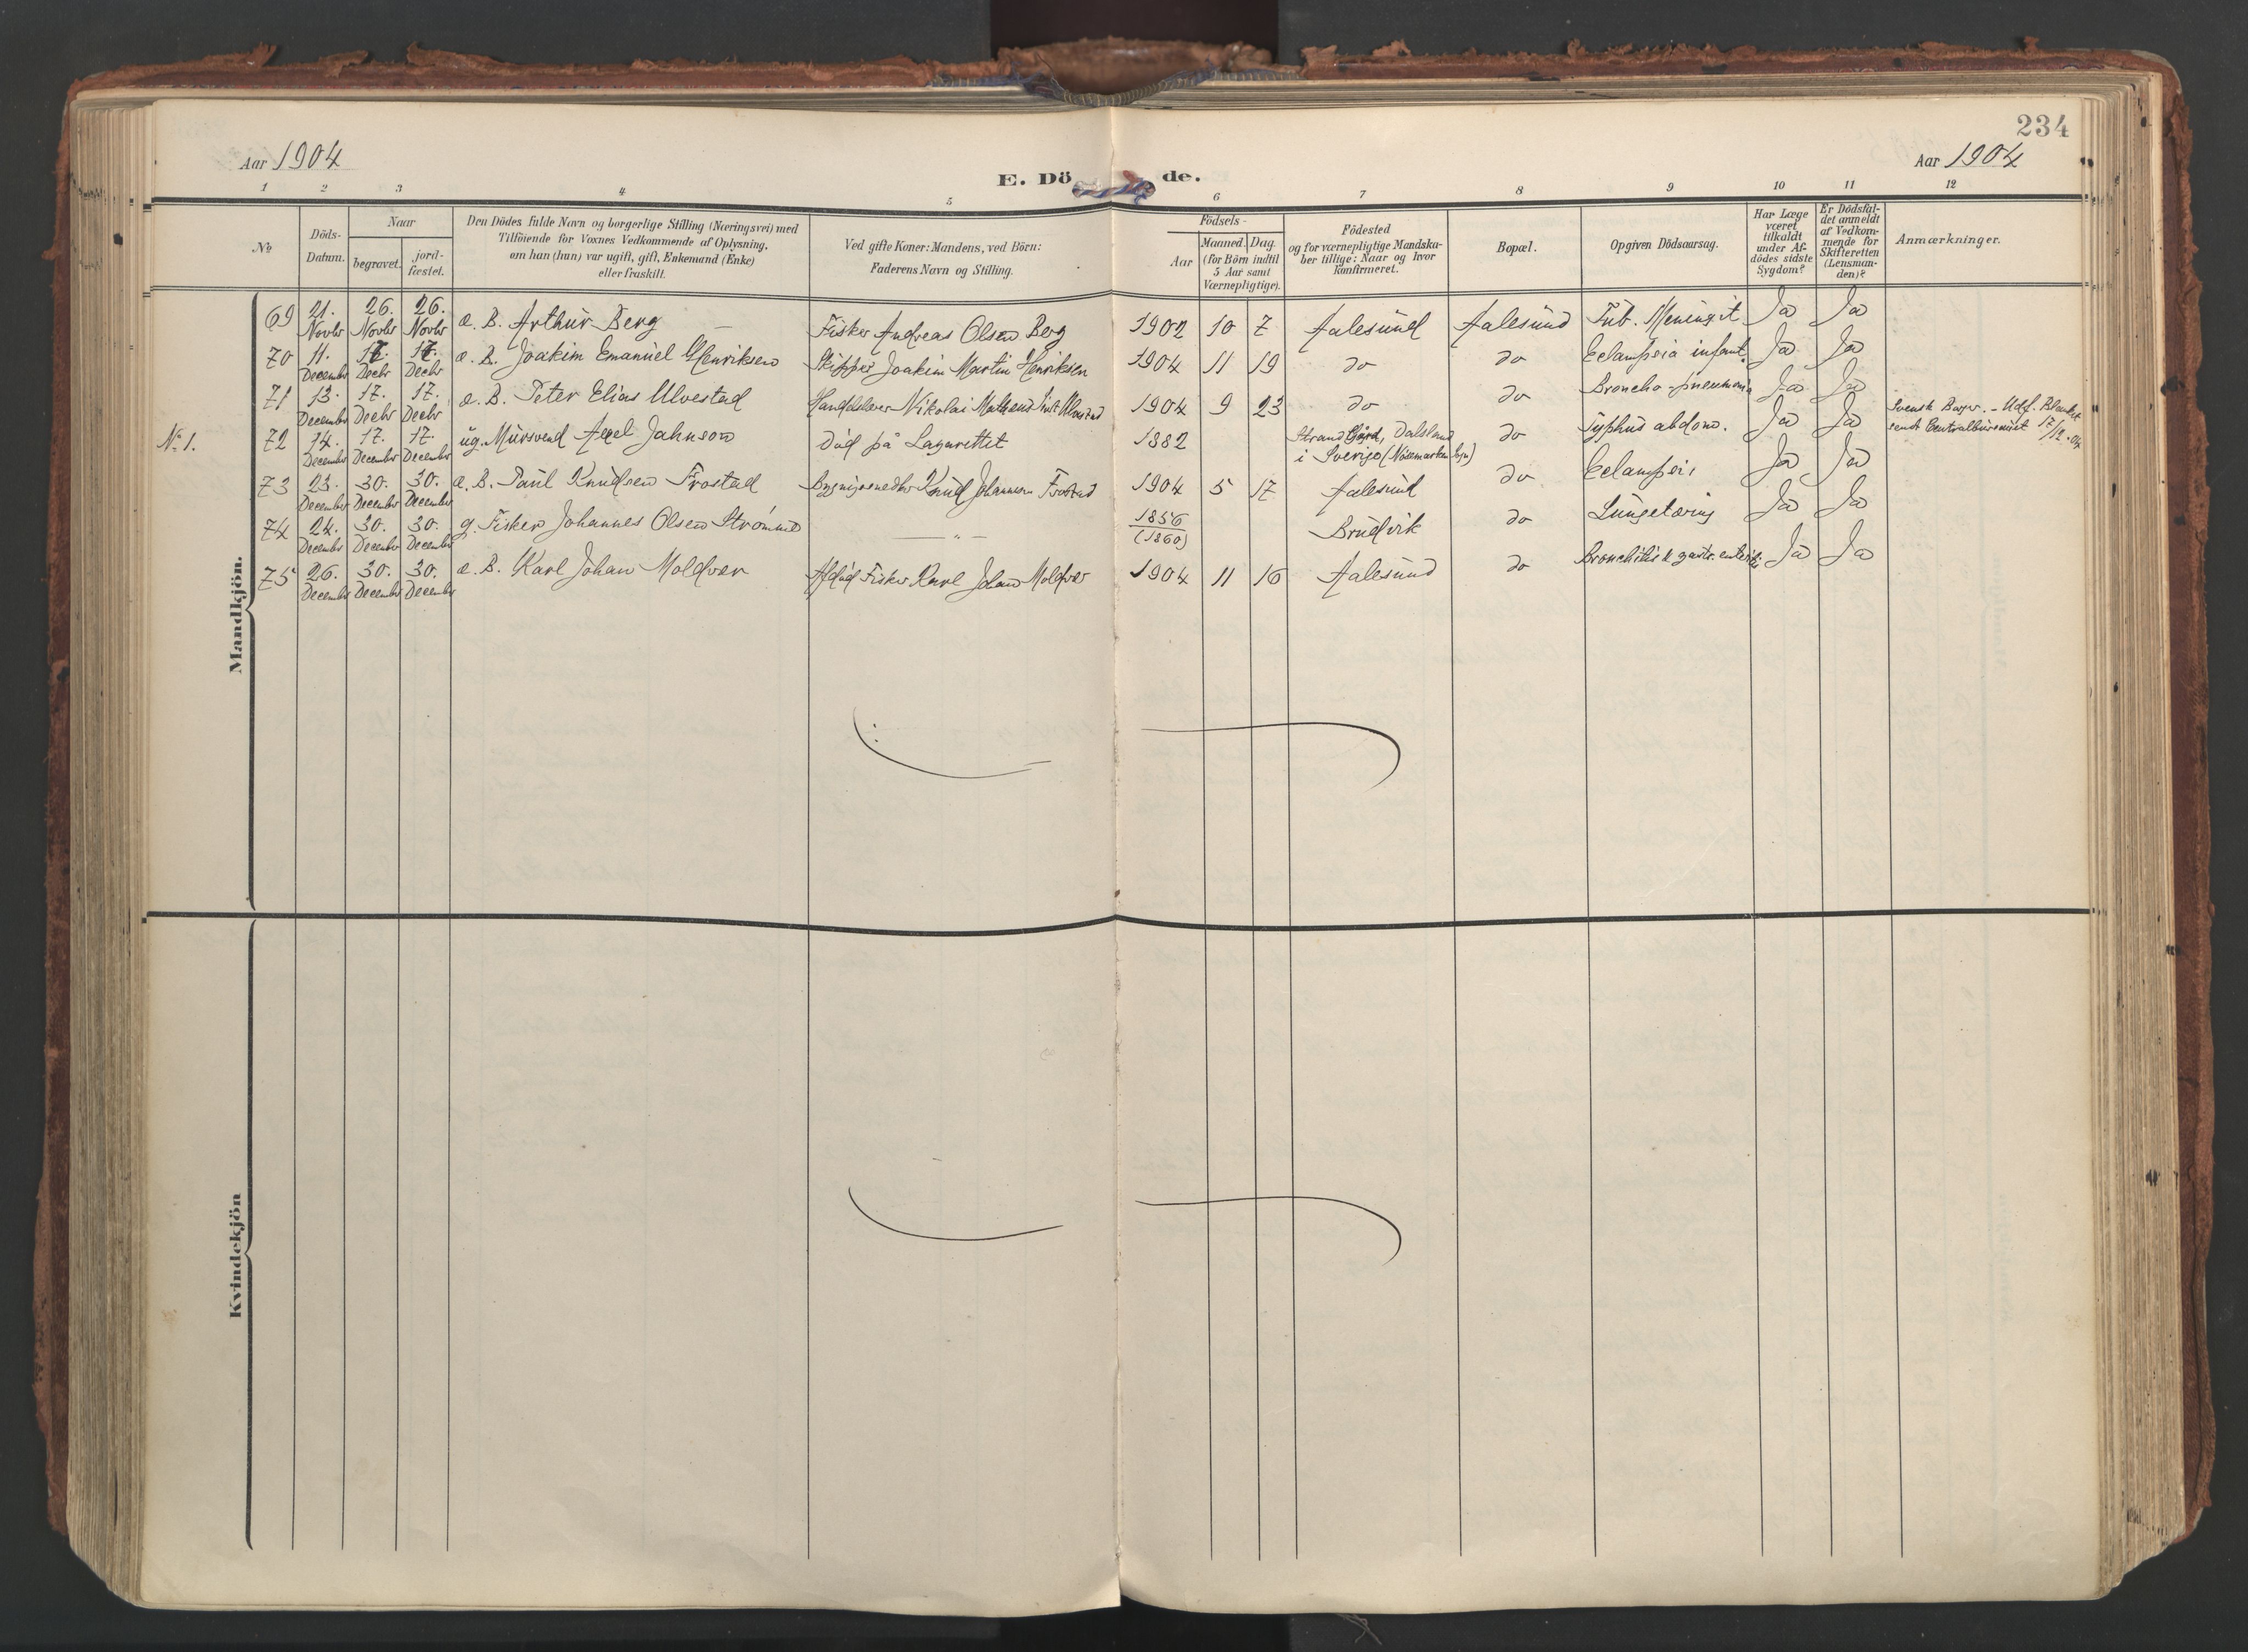 234
Aar 1904
Aar 1904
E. Dö de.
1 2 3 4 5 6 7 8 9 10 11 12
No
Döds-
Datum.
Naar
begravet.
jord-
fæstet.
Den Dödes fulde Navn og borgerlige Stilling (Næringsvei) med
Tilföiende for Voxnes Vedkommende af Oplysning,
om han (hun) var ugift, gift, Enkemand (Enke)
eller fraskilt.
Ved gifte Koner: Mandens, ved Börn:
Faderens Navn og Stilling.
Födsels-
Aar
Maaned. Dag.
(for Börn indtil
5 Aar samt
Værnepligtige).
Födested
og for værnepligtige Mandska-
ber tillige: Naar og hvor
konfirmeret.
Bopæl.
Opgiven Dödsaarsag.
Har Læge
været
tilkaldt
under Af-
dödes sidste
Sygdom?
Er Dödsfal-
det anmeldt
af Vedkom-
mende for
Skifteretten
(Lensman-
den)?
Anmærkninger.
Mandkjön.
69 21. Novbr 26. Novbr 26. Novbr æ. B. Arthur Berg Fisker Andreas Olsen Berg 1902 10 7 Aalesund Aalesund Tub. Meningit Ja Ja
70 11. Decembr 17. Decbr 17. Decbr æ. B. Joakim Emanuel Henriksen Skipper Joakim Martin Henriksen 1904 11 19 do do Eclampsia infant. Ja Ja
71 13. Decembr 17. Decbr 17. Decbr æ. B. Peter Elias Ulvestad Nikolai Ulvestad 1904 9 23 do do Broncho-pneumoni Ja Ja
No 1. 72 14. Decembr 17. Decembr 17. Decembr ug. Mursvend Axel Jahnson Död på Lazarettet 1882 Strand Gård, Dalsland do Typhus abdom. Ja Ja Svensk Borger. - Udf. Blanket
i Sverige (Nösemarken) sendt Centralbureauet 17/12.04
73 23. Decembr 30. Decembr 30. Decembr æ. B. Paul Knudsen Frostad Knud Johannesen Frostad 1904 5 17 Aalesund do Eclampsi Ja Ja
74 24. Decembr 30. Decembr 30. Decembr g. Fisker Johannes Olsen Strömme — " — 1856 (1860) Brudvik do Lungetæring Ja Ja
75 26. Decembr 30. Decembr 30. Decembr æ. B. Karl Johan Moldver Afdöd Fisker Karl Johan Moldver 1904 11 16 Aalesund do Bronchitis & gastr. enterit. Ja Ja
Kvindekjön